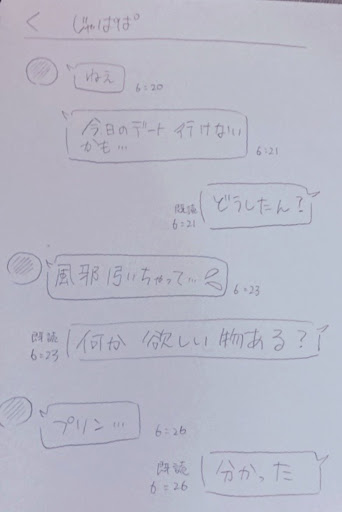 < じゃぱぱ
ねぇ
6:20
今日のデート行けない
かも…
6:21
どうしたん?
既読
6:21
風邪引いちゃって…
6:23
何か欲しい物ある?
既読
6:23
プリン…
6:26
分かった
既読
6:26